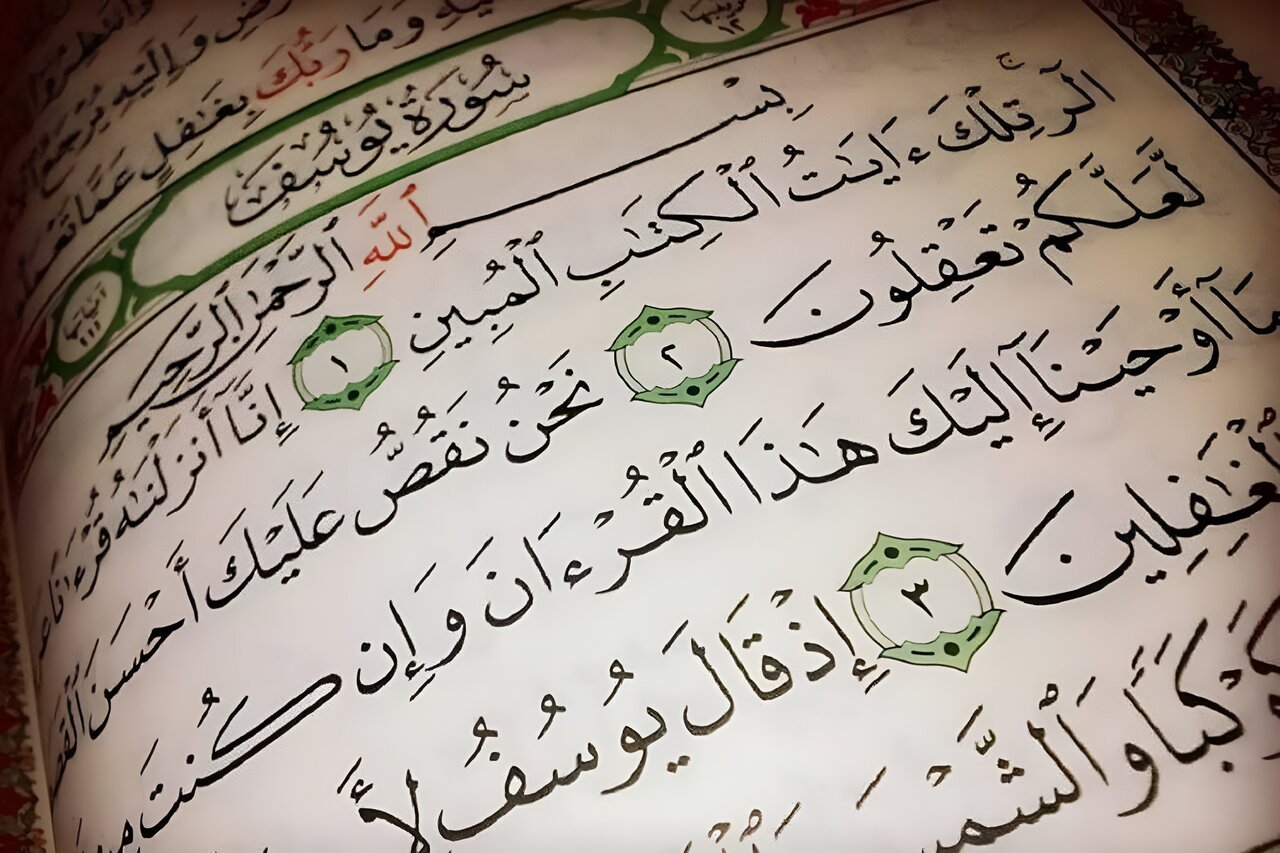 وَإِلَيْهِ يُرْجَعُ
وَمَا رَبُّكَ بِغَٰفِلٍ عَمَّا
سُورَةُ يُوسُفَ
بِسْمِ ٱللَّهِ ٱلرَّحْمَٰنِ ٱلرَّحِيمِ
الٓر تِلْكَ ءَايَٰتُ ٱلْكِتَٰبِ ٱلْمُبِينِ ١ إِنَّآ أَنزَلْنَٰهُ قُرْءَٰنًا
لَّعَلَّكُمْ تَعْقِلُونَ ٢ نَحْنُ نَقُصُّ عَلَيْكَ أَحْسَنَ
أَوْحَيْنَآ إِلَيْكَ هَٰذَا ٱلْقُرْءَانَ وَإِن كُنتَ
ٱلْغَٰفِلِينَ ٣ إِذْ قَالَ يُوسُفُ
كَوْكَبًا وَٱلشَّمْسَ